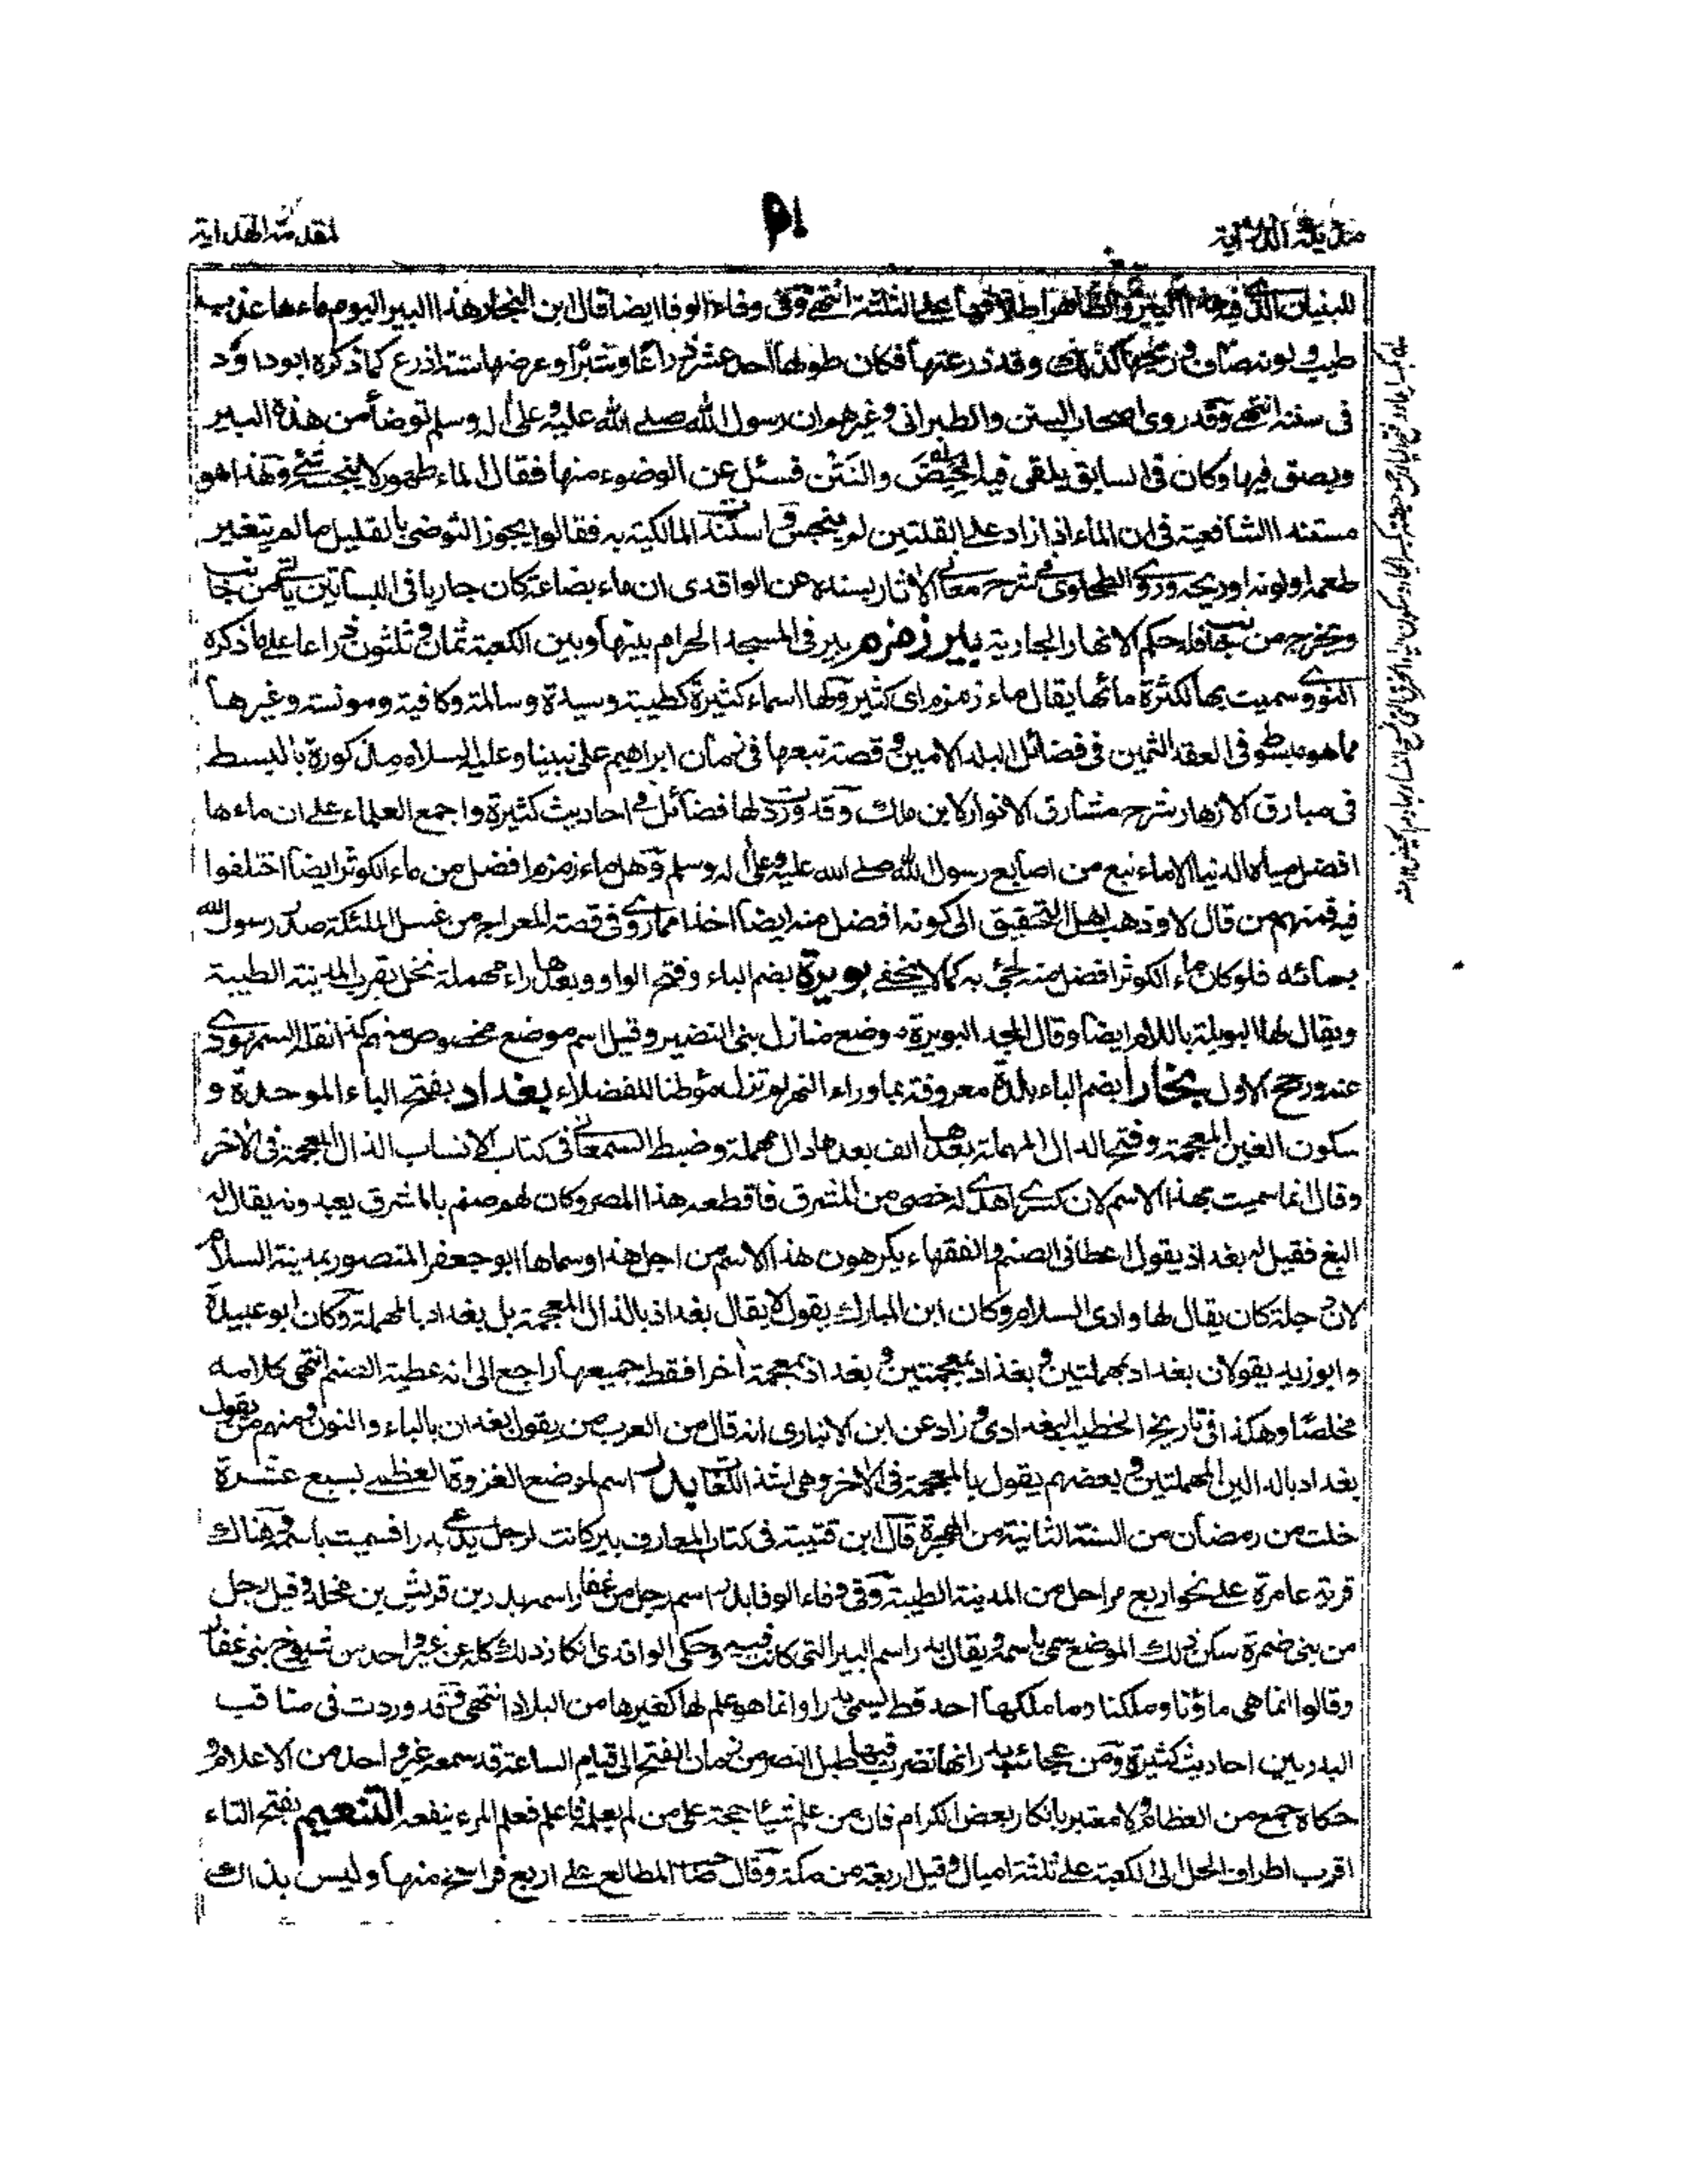 مذيلة الدراية
١٥
لمقدمة الهداية
للبنيان الذي فيها انتهى وفي وفاء الوفا ايضا قال ابن النجار هذا البير اليوم ماءها عذب
طيب ولونه صاف وريحها كذلك وقد ذرعتها فكان طولها احد عشر ذراعا وشبرا وعرضها ستة اذرع كما ذكره ابو داود
في سننه انتهى وقد روى اصحاب السنن والطبراني وغيرهم ان رسول الله صلى الله عليه وعلى اله وسلم توضأ من هذه البير
وبصق فيها وكان في السابق يلقى فيه الحيض والنتن فسئل عن الوضوء منها فقال الماء طهور لا ينجسه شئ وهذا هو
مستند الشافعية في ان الماء اذا زاد على القلتين لم ينجس واستند المالكية به فقالوا يجوز التوضي بالقليل ما لم يتغير
طعمه او لونه او ريحه وروى الطحاوي في شرح معاني الاثار بسنده عن الواقدي ان ماء بضاعة كان جاريا في البساتين ياتي من جانب
ويخرج من جانب فله حكم الانهار الجارية بير زمزم بير في المسجد الحرام بينها وبين الكعبة ثمان وثلثون ذراعا على ما ذكره
النووي سميت بها لكثرة مائها يقال ماء زمزم اى كثير ولها اسماء كثيرة كطيبة وسيدة وسالمة وكافية ومونسة وغيرها
مما هو مبسوط في العقد الثمين في فضائل البلد الامين وقصة نبعها في زمان ابراهيم على نبينا وعليه السلام مذكورة بالبسط
في مبارق الازهار شرح مشارق الانوار لابن ملك وقد وردت لها فضائل في احاديث كثيرة واجمع العلماء على ان ماءها
افضل مياه الدنيا الا ماء نبع من اصابع رسول الله صلى الله عليه وعلى اله وسلم وهل ماء زمزم افضل من ماء الكوثر ايضا اختلفوا
فيه فمنهم من قال لا وذهب اهل التحقيق الى كونه افضل منه ايضا اخذا مما روى في قصة المعراج من غسل الملئكة صدر رسول الله
بمائه فلو كان ماء الكوثر افضل منه لجئ به كما لا يخفى بويرة بضم الباء وفتح الواو وبعدها راء مهملة نخل بقرب المدينة الطيبة
ويقال لها البويلة باللام ايضا وقال المجد البويرة موضع منازل بني النضير وقيل اسم موضع مخصوص منهم كذا نقله السمهودي
عنه ورجح الاول بخارا بضم الباء بلدة معروفة بما وراء النهر لم تزل موطنا للفضلاء بغداد بفتح الباء الموحدة و
سكون الغين المعجمة وفتح الدال المهملة بعدها الف بعدها دال مهملة وضبط السمعاني في كتاب الانساب الذال المعجمة في الاخر
وقال انما سميت بهذا الاسم لان كسرى اهدى له خصي من المشرق فاقطعه هذا المصر وكان لهم صنم بالمشرق يعبدونه يقال له
البغ فقيل له بغداد يقول اعطاني الصنم والفقهاء يكرهون هذا الاسم من اجل هذا وسماها ابو جعفر المنصور بمدينة السلام
لان دجلة كان يقال لها وادى السلام وكان ابن المبارك يقول لا يقال بغداذ بالذال المعجمة بل بغداد بالمهملة وكان ابو عبيدة
وابو زيد يقولان بغداد بمهملتين وبغذاذ بمعجمتين وبغداذ بمعجمة اخرا فقط جميعها راجع الى انه عطية الصنم انتهى كلامه
مخلصا وهكذا في تاريخ الخطيب البغدادي وزاد عن ابن الانباري انه قال من العرب من يقول بغدان بالباء والنون ومنهم من يقول
بغداد بالدالين المهملتين وبعضهم يقول بالمعجمة في الاخر وهي اشذ اللغات بدر اسم لموضع الغزوة العظمى لسبع عشرة
خلت من رمضان من السنة الثانية من الهجرة قال ابن قتيبة في كتاب المعارف بير كانت لرجل يدعى بدرا فسميت باسمه وهناك
قرية عامرة على نحو اربع مراحل من المدينة الطيبة وفي وفاء الوفا بدر اسم رجل من غفار اسمه بدر بن قريش بن مخلد وقيل رجل
من بني ضمرة سكن ذلك الموضع سمى باسمه ويقال بدر اسم البير التي كانت فيه وحكى الواقدي انكار ذلك كله عن غير واحد من شيوخ بني غفار
وقالوا انما هي ماؤنا وملكنا وما ملكها احد قط يسمى بدرا وانما هو علم لها كغيرها من البلاد انتهى وقد وردت في مناقب
البدريين احاديث كثيرة ومن عجائب بدر انها تضرب فيها طبل النصر من زمان الفتح الى قيام الساعة قد سمعه غير واحد من الاعلام و
حكاه جمع من العظام ولا معتبر بانكار بعض الكرام فان من علم شيئا حجة على من لم يعلم فاعلم فعلم المرء ينفعه التنعيم بفتح التاء
اقرب اطراف الحل الى الكعبة على ثلثة اميال وقيل اربعة من مكة وقال صاحب المطالع على اربع فراسخ منها وليس بذاك